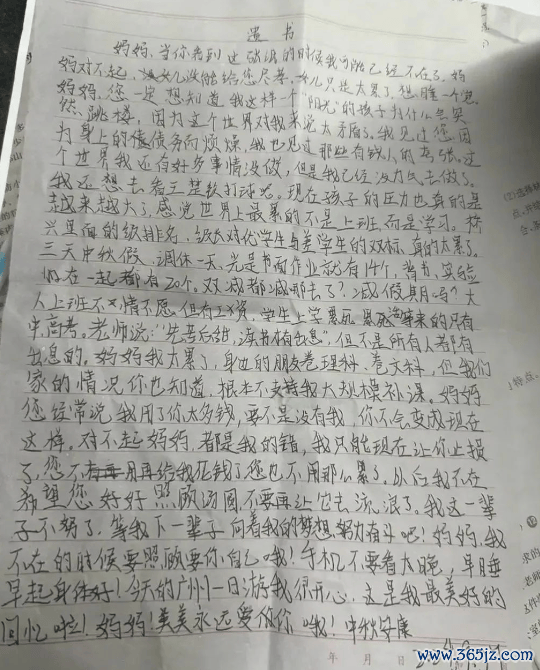 遗 书
妈妈,当你看到这张纸的时候我可能已经不在了。妈
妈对不起,女儿没能给您尽孝,女儿只是太累了,想睡一个觉
妈妈,您一定想知道我这样一个"阳光"的孩子为什么会突
然跳楼,因为这个世界对我来说太矛盾了。我见过您因
为身上的债务而烦燥,我也见过那些有钱人的夸张。这
个世界我还有好多事情没做,但是我已经没力气去做了。
我还想去看王楚钦打球呢。现在孩子的压力也真的是
越来越大了,感觉世界上最累的不是上班,而是学习。
兴里面的级排名,级长对优学生与差学生的双标,真的太累了。
三天中秋假,调休一天,光是书面作业就有14个,背书,实验
在一起都有20个。双减都减哪去了?减假期吗?大
人上班不情不愿,但有工资,学生上学累死累活等来的只有
中高考。老师说:"先苦后甜,读书才有出息",但不是所有人都有
出息的。妈妈我太累了,身边的朋友卷理科、卷文科,但我们
家的情况你也知道,根本不支持我大规模补课。妈妈
您经常说我用了你太多钱,要不是没有我,你不会变成现在
这样。对不起妈妈,都是我的错,我只能现在让你止损
了,您不用再给我花钱了您也不用那么累了。以后我不在
希望您好好照顾汤圆,不要再让它去流浪了。我这一辈
子不努了,等我下一辈子向着我的梦想努力奋斗吧!妈妈,我
不在的时候要照顾要你自己哦!手机不要看太晚,早睡
早起身体好!今天的广州一日游我很开心,这是我最美好的
回忆啦!妈妈!美美永远爱你你哦!中秋安康
年 月 日
www.365jz.com